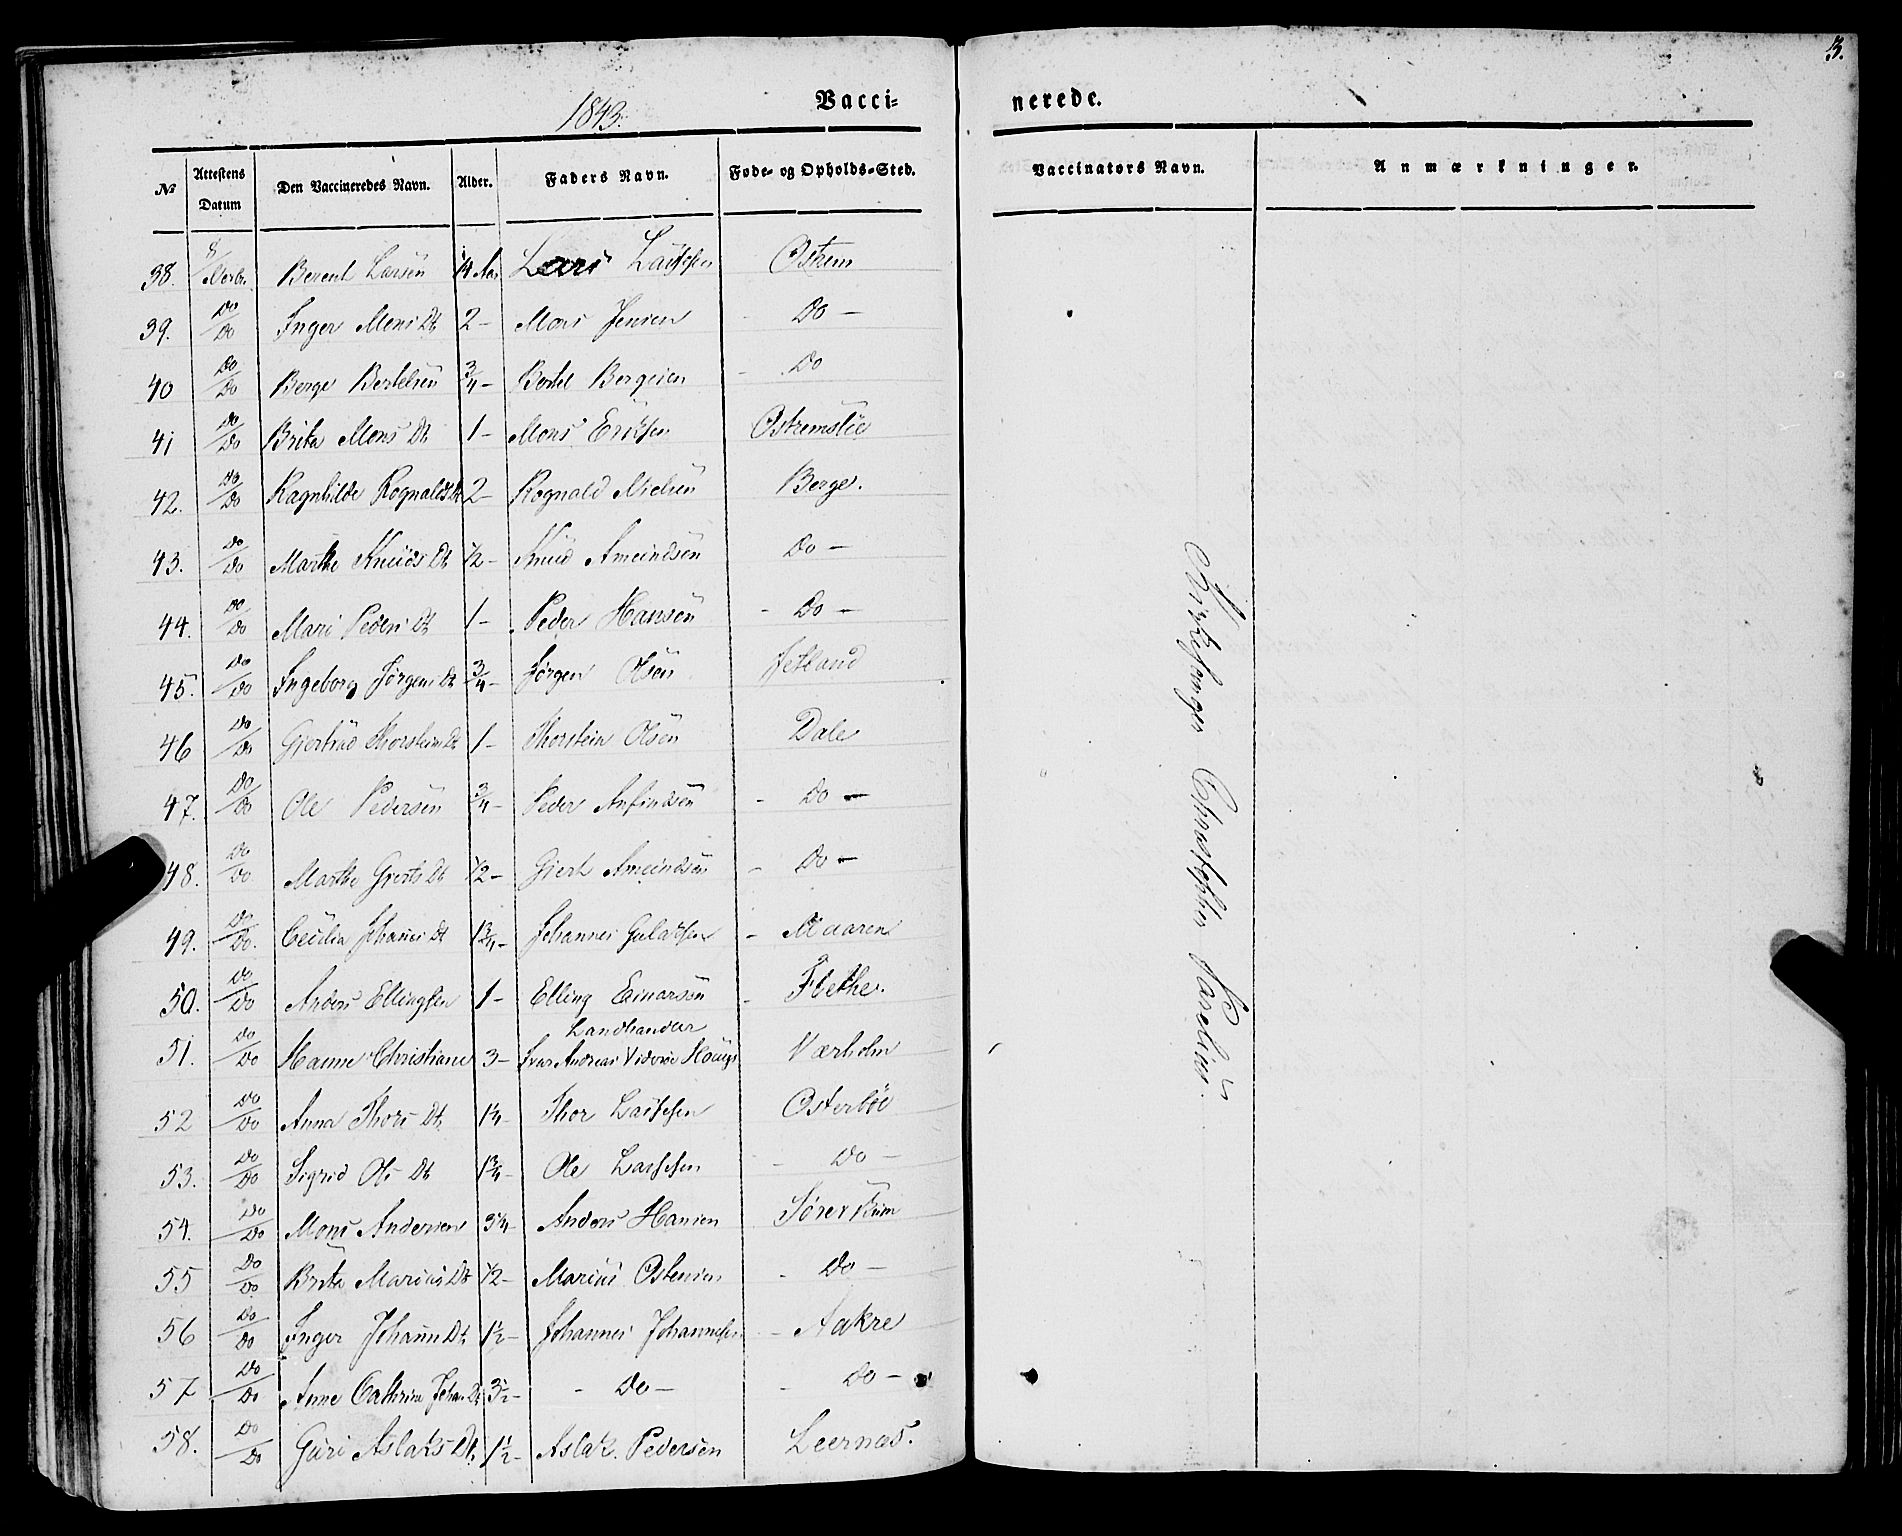 3.
1843.
Vacci=
nerede.
No Attestens Datum Den Vaccineredes Navn. Alder. Faders Navn. Føde- og Opholds-Sted.
Vaccinators Navn. Anmærkninger.
38. 8/ Berent Larsen Lars Larssen Ostrem
39. Do/Do Inger Mons Dt 2- Mons Jensen Do -
40 Do/Do Berge Bertelsen 3/4- Bertel Bergesen Do
41 Do/Do Brita Mons Dt 1- Mons Eriksen Ostremslie
42. Do/Do Ragnhilde Rognalds Dt 2- Rognald Nielsen Berge.
43. Do/Do Marthe Knuds Dt 1/2- Knud Amundsen Do -
44. Do/Do Mari Peders Dt 1- Peder Hansen - Do -
45. Do/Do Ingeborg Jørgens Dt 3/4- Jørgen Olsen Jetland
46 Do/Do Gjertrud Thorsteins Dt 1- Thorstein Olsen Dale
47. Do/Do Ole Pedersen 3/4- Peder Anfindsen - Do -
48. Do/Do Marthe Gjerts Dt 1/2- Gjert Amundsen - Do -
49. Do/Do. Cecilia Johannes Dt 1 3/4- Johannes - Maaren
50. Do/Do Anders Ellingsen 1- Elling Einarsen - Flethe.
Landhandler
51. Do/Do Hanne Christiane 3- Ivar Andreas Værholm
52 Do/Do Anna Thors Dt 1 1/4- Thor Larssen Osterbøe
53. Do/Do Sigrid Ols Dt 1 3/4- Ole Larssen - Do -
54. Do/Do Mons Andersen 3 1/4- Anders Hansen
55 Do/Do Brita Marius Dt 1/2- Marius Ostensen - Do -
56 Do/Do Inger Johanne Dt 1 1/2- Johannes Johannesen - Aakre
57 Do/Do Anne Cathrine Johan Dt 3 1/2- - Do - - Do -
58. Do/Do Guri Aslaks Dt. 1 1/2- Aslak Pedersen Leernæs.
Kirkesanger Christopher